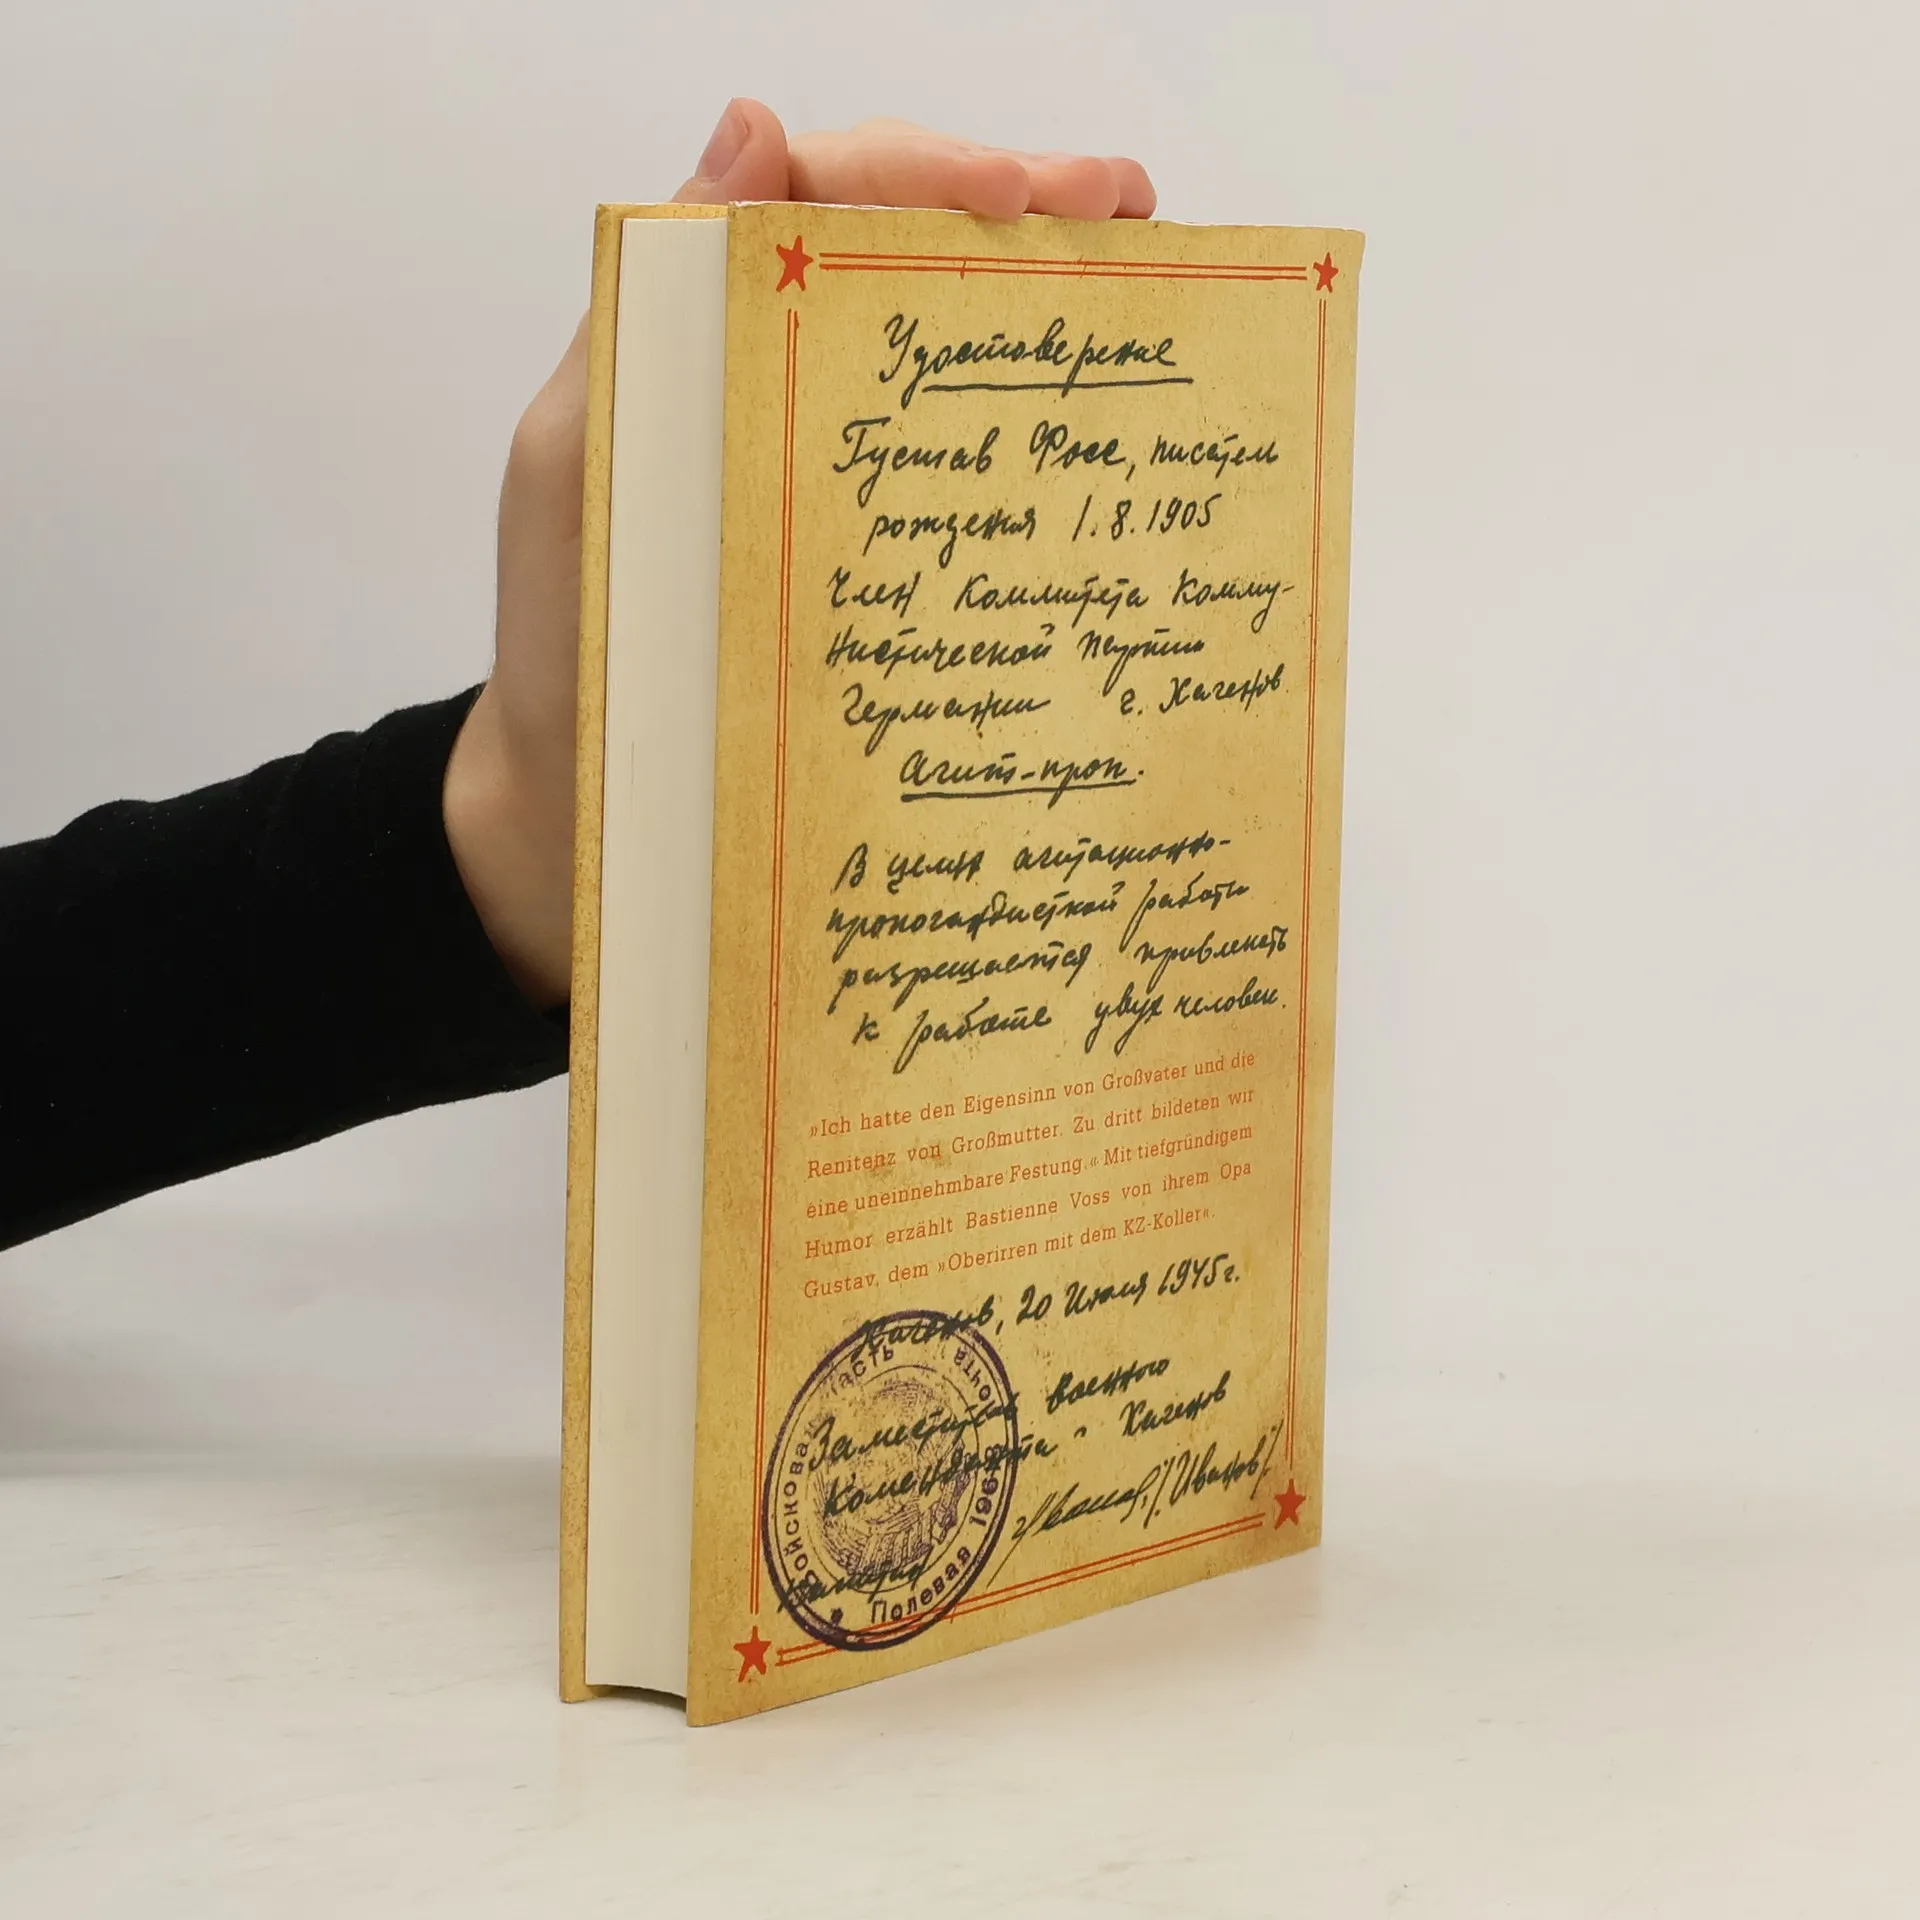 Удостоверение
Густав Фосс, писател
рождения 1.8.1905
Член Коммитета Комму-
нистической партии
Германии г. Хагенов
Агит-проп.
В целях агитационно-
пропогандисткой работы
разрешается привлекать
к работе двух человек.
»Ich hatte den Eigensinn von Großvater und die
Renitenz von Großmutter. Zu dritt bildeten wir
eine uneinnehmbare Festung.« Mit tiefgründigem
Humor erzählt Bastienne Voss von ihrem Opa
Gustav, dem »Oberirren mit dem KZ-Koller«.
Хагенов, 20 Июля 1945г.
Заместител военного
коменданта Хагенов
/Иванов/
Капитан
Полевая